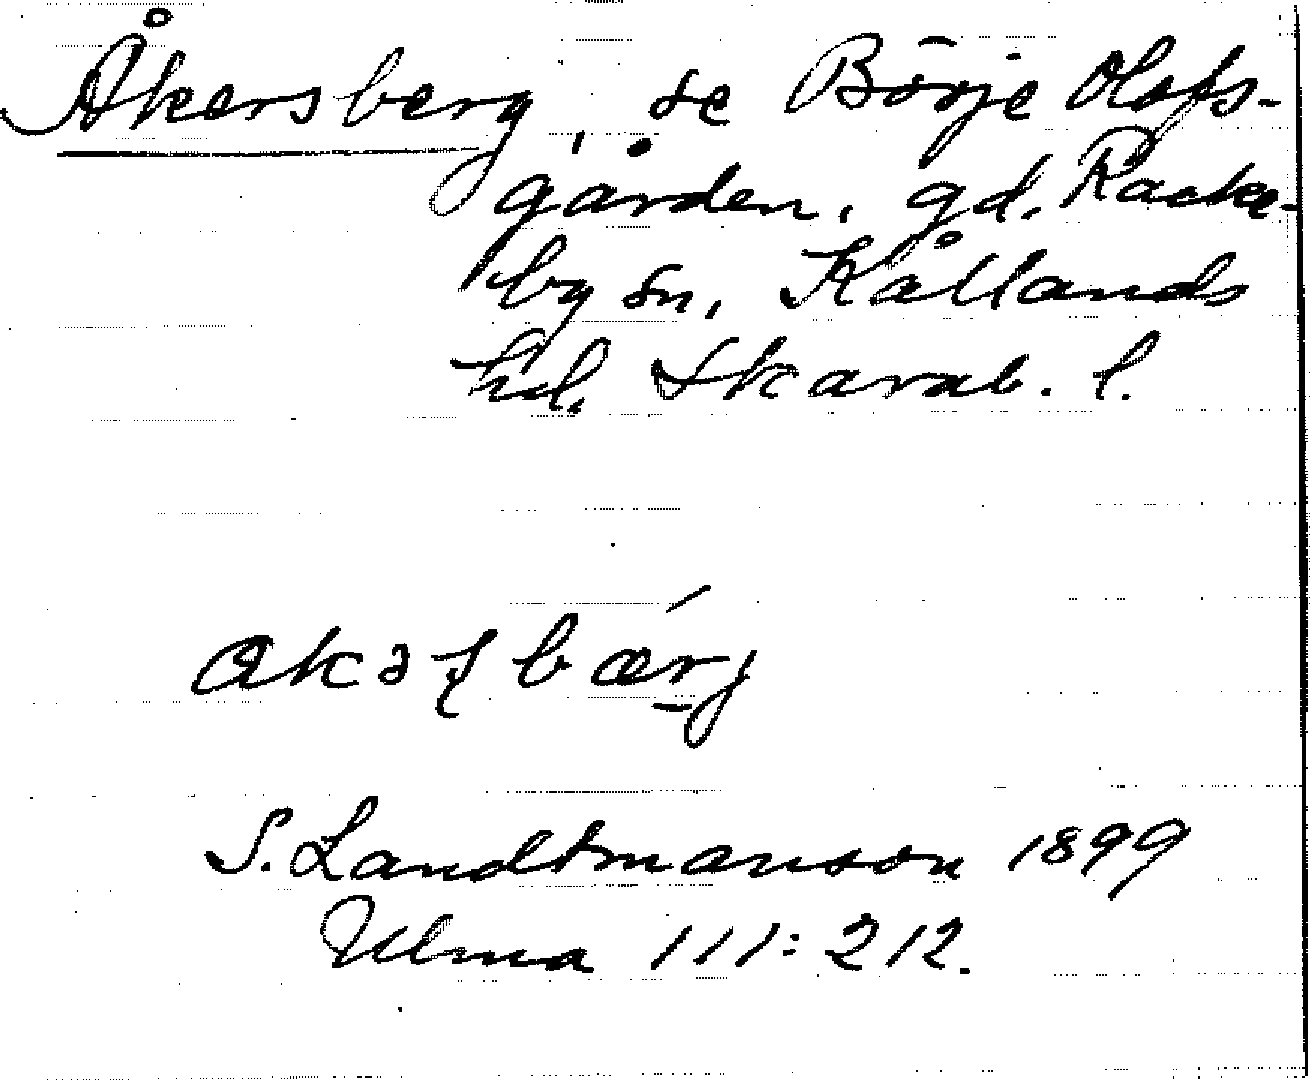 Åkersberg, se Börje Olofs-
gården, gd. Racke-
by sn, Kållands
hd. Skarab. l.
akəʃbærj
S. Landtmanson 1899
Ulma 111:212.